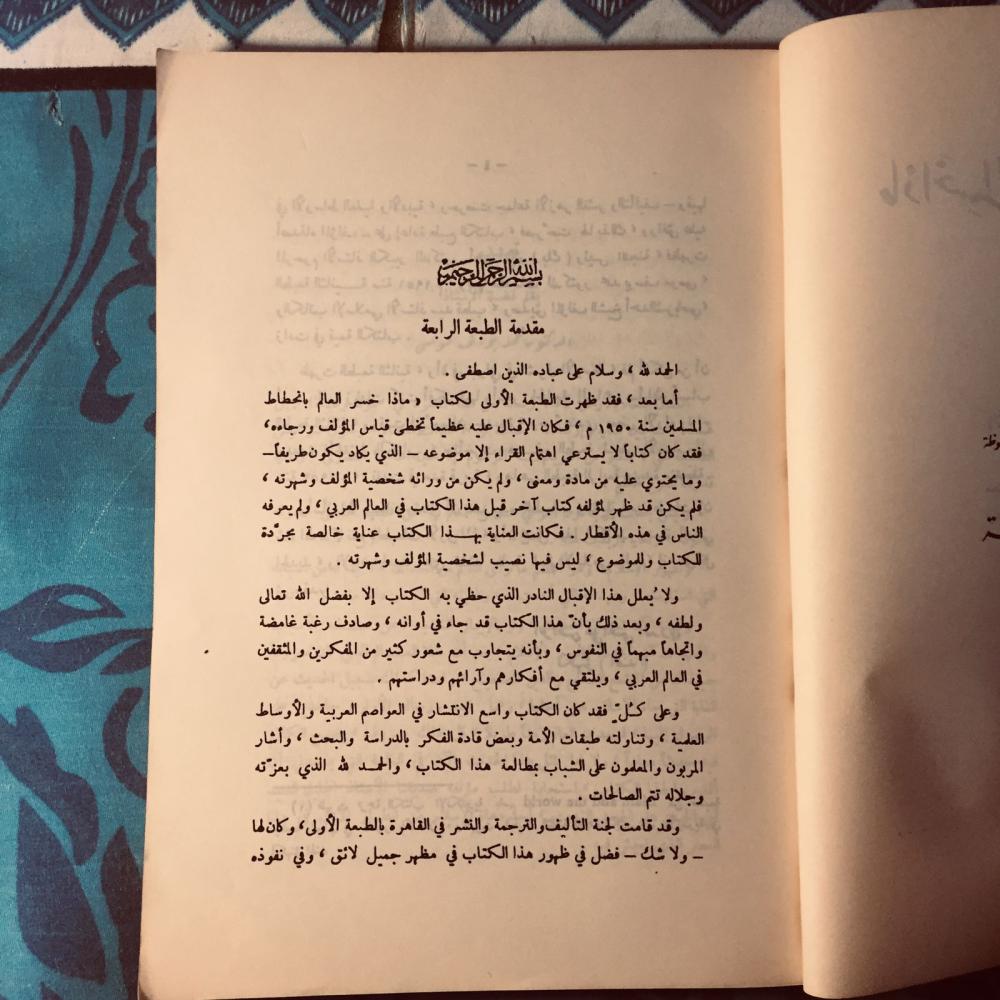 بسم الله الرحمن الرحيم
مقدمة الطبعة الرابعة
الحمد لله ، وسلام على عباده الذين اصطفى .
أما بعد ، فقد ظهرت الطبعة الأولى لكتاب « ماذا خسر العالم بانحطاط
المسلمين سنة ١٩٥٠ م ، فكان الإقبال عليه عظيماً تخطى قياس المؤلف ورجاءه،
فقد كان كتاباً لا يسترعي اهتمام القراء إلا موضوعه – الذي يكاد يكون طريفاً–
وما يحتوي عليه من مادة ومعنى ، ولم يكن من ورائه شخصية المؤلف وشهرته ،
فلم يكن قد ظهر لمؤلفه كتاب آخر قبل هذا الكتاب في العالم العربي ، ولم يعرفه
الناس في هذه الأقطار . فكانت العناية بهـــذا الكتاب عناية خالصة مجرَّدة
للكتاب وللموضوع ، ليس فيها نصيب لشخصية المؤلف وشهرته .
ولا يُعلل هذا الإقبال النادر الذي حظي به الكتاب إلا بفضل الله تعالى
ولطفه ، وبعد ذلك بأنّ هذا الكتاب قد جاء في أوانه ، وصادف رغبة غامضة
واتجاهاً مبهماً في النفوس ، وبأنه يتجاوب مع شعور كثير من المفكرين والمثقفين
في العالم العربي ، ويلتقي مع أفكارهم وآرائهم ودراستهم .
وعلى كـُلّ فقد كان الكتاب واسع الانتشار في العواصم العربية والأوساط
العلمية ، وتناولته طبقات الأمة وبعض قادة الفكر بالدراسة والبحث ، وأشار
المربون والمعلمون على الشباب بمطالعة هذا الكتاب ، والحمـد لله الذي بعزّته
وجلاله تتم الصالحات .
وقد قامت لجنة التأليف والترجمة والنشر في القاهرة بالطبعة الأولى، وكان لها
– ولا شك – فضل في ظهور هذا الكتاب في مظهر جميل لائق ، وفي نفوذه